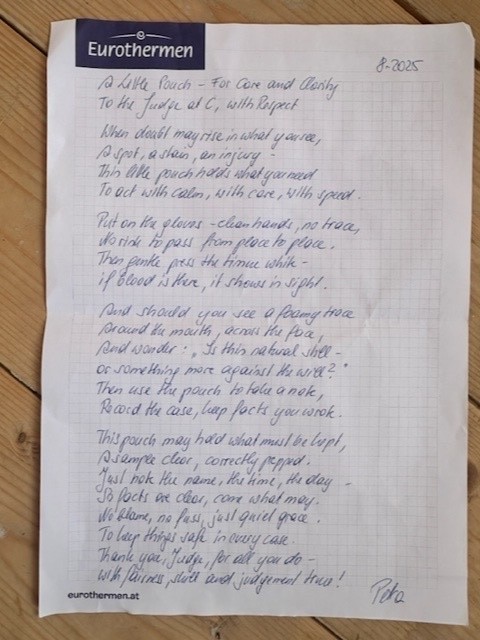 Eurothermen
8-2025
A little Pouch – For Care and Clarity
To the Judge at C, with Respect
When doubt may rise in what you see,
A spot, a stain, an injury –
This little pouch holds what you need
To act with calm, with care, with speed.
Put on the gloves – clean hands, no trace,
No risk to pass from place to place.
Then gentle press the tissue white –
if blood is there, it shows in sight.
And should you see a foamy trace
Around the mouth, across the face,
And wonder: „Is this natural still –
or something more against the will?"
Then use the pouch to take a note,
Record the case, keep facts you wrote.
This pouch may hold what must be kept,
A sample clear, correctly prepped.
Just note the name, the time, the day –
So facts are clear, come what may.
No blame, no fuss, just quiet grace.
To keep things safe in every case.
Thank you, Judge, for all you do –
with fairness, skill and judgement true!
Petra
eurothermen.at